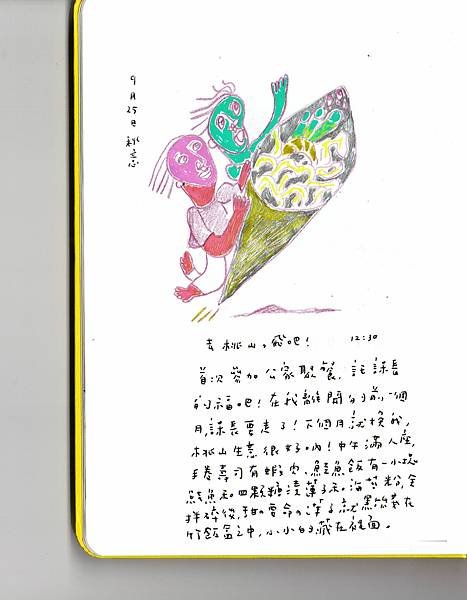 9月25日 
去桃山,飛吧! 12:30
首次參加公家聚餐, 託課長
的福吧!在我離開的前一個
月,課長要走了!下個月就換我,
桃山生意很好吶!中午滿人座,
手卷壽司有蝦肉、鮭魚飯有一小塊
鮭魚和四顆糖漬蓮子和海苔粉,全
拌碎後,甜的要命的蓮子就黑黑藏在
竹飯盒之中,小小的藏在裡面。